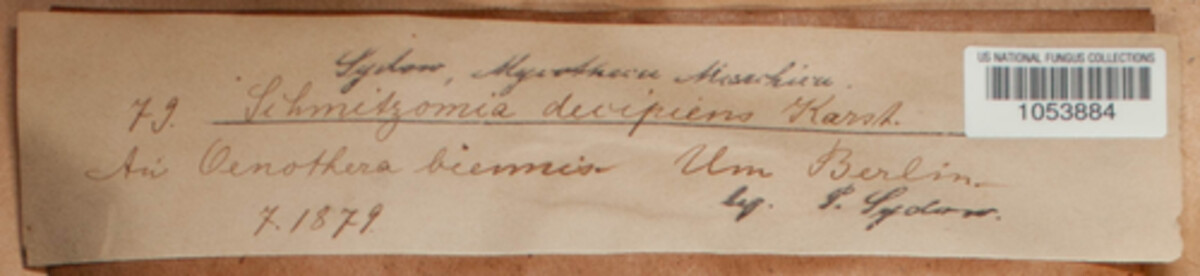 Sydow, Mycotheca Marchica.
79. Schmitzomia decipiens Karst.
An Oenothera biennis Um Berlin.
7. 1879
leg. P. Sydow.
US NATIONAL FUNGUS COLLECTIONS
1053884